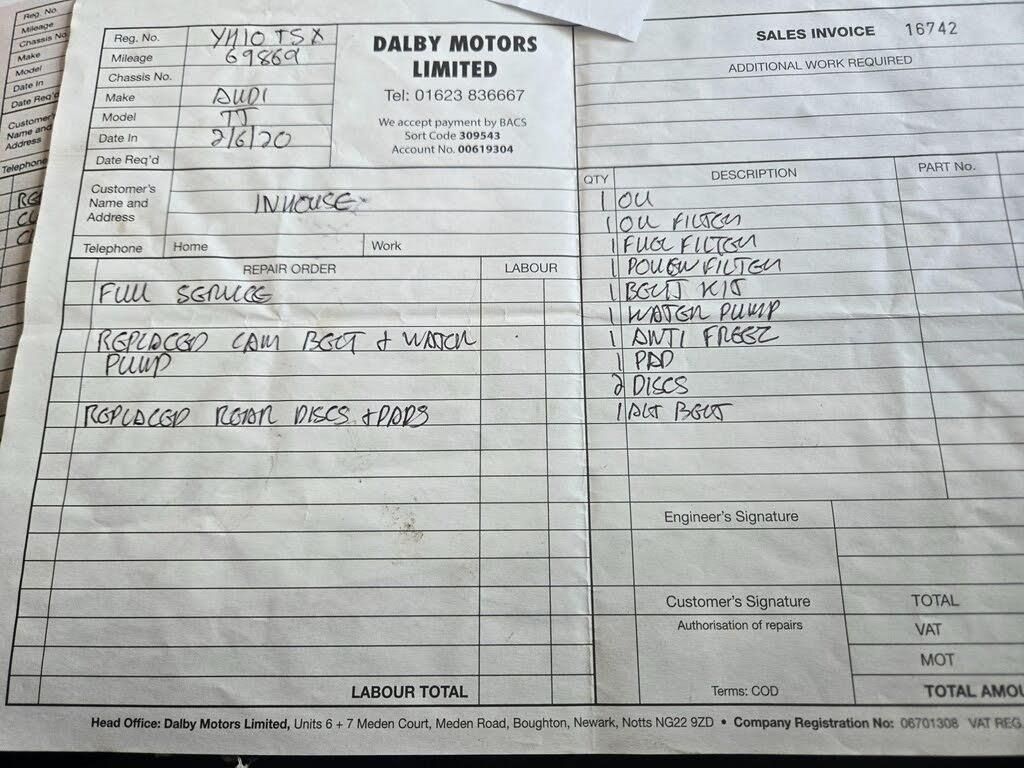 Reg. No.
Mileage
Chassis No.
Make
Model
Date In
Date Req'd
Customer's
Name and
Address
Telephone
Reg. No. YH10 TSX
Mileage 69869
Chassis No.
Make AUDI
Model TT
Date In 2/6/20
Date Req'd
DALBY MOTORS
LIMITED
Tel: 01623 836667
We accept payment by BACS
Sort Code 309543
Account No. 00619304
Customer's
Name and
Address
INHOUSE
Telephone Home Work
REPAIR ORDER LABOUR
FULL SERVICE
REPLACED CAM BELT & WATER
PUMP
REPLACED REAR DISCS & PADS
LABOUR TOTAL
SALES INVOICE 16742
ADDITIONAL WORK REQUIRED
QTY DESCRIPTION PART No.
1 OIL
1 OIL FILTER
1 FUEL FILTER
1 POLLEN FILTER
1 BELT KIT
1 WATER PUMP
1 ANTI FREEZ
1 PAD
2 DISCS
1 ALT BELT
Engineer's Signature
Customer's Signature
Authorisation of repairs
Terms: COD
TOTAL
VAT
MOT
TOTAL AMOU
Head Office: Dalby Motors Limited, Units 6 + 7 Meden Court, Meden Road, Boughton, Newark, Notts NG22 9ZD • Company Registration No: 06701308 VAT REG